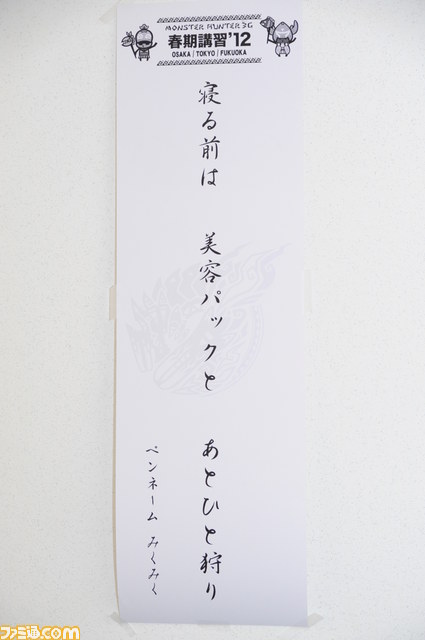 MONSTER HUNTER 3G
春期講習'12
OSAKA / TOKYO / FUKUOKA
寝る前は 美容パックと あとひと狩り
ペンネーム みくみく
ファミ通.com